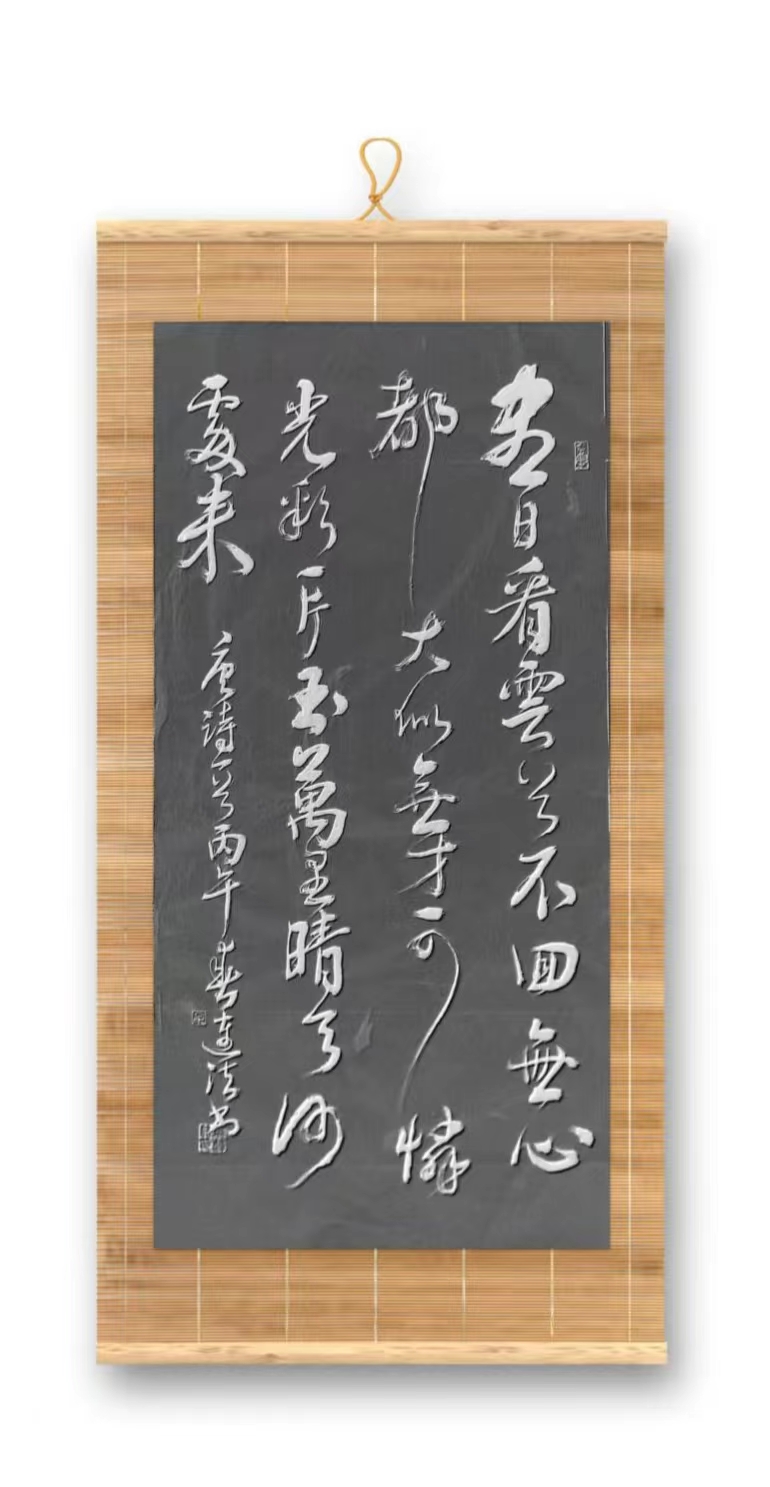 盡日看雲首不回無心
都大似無才可憐
光彩一片玉萬里晴天何
處来
唐詩一首丙午春書